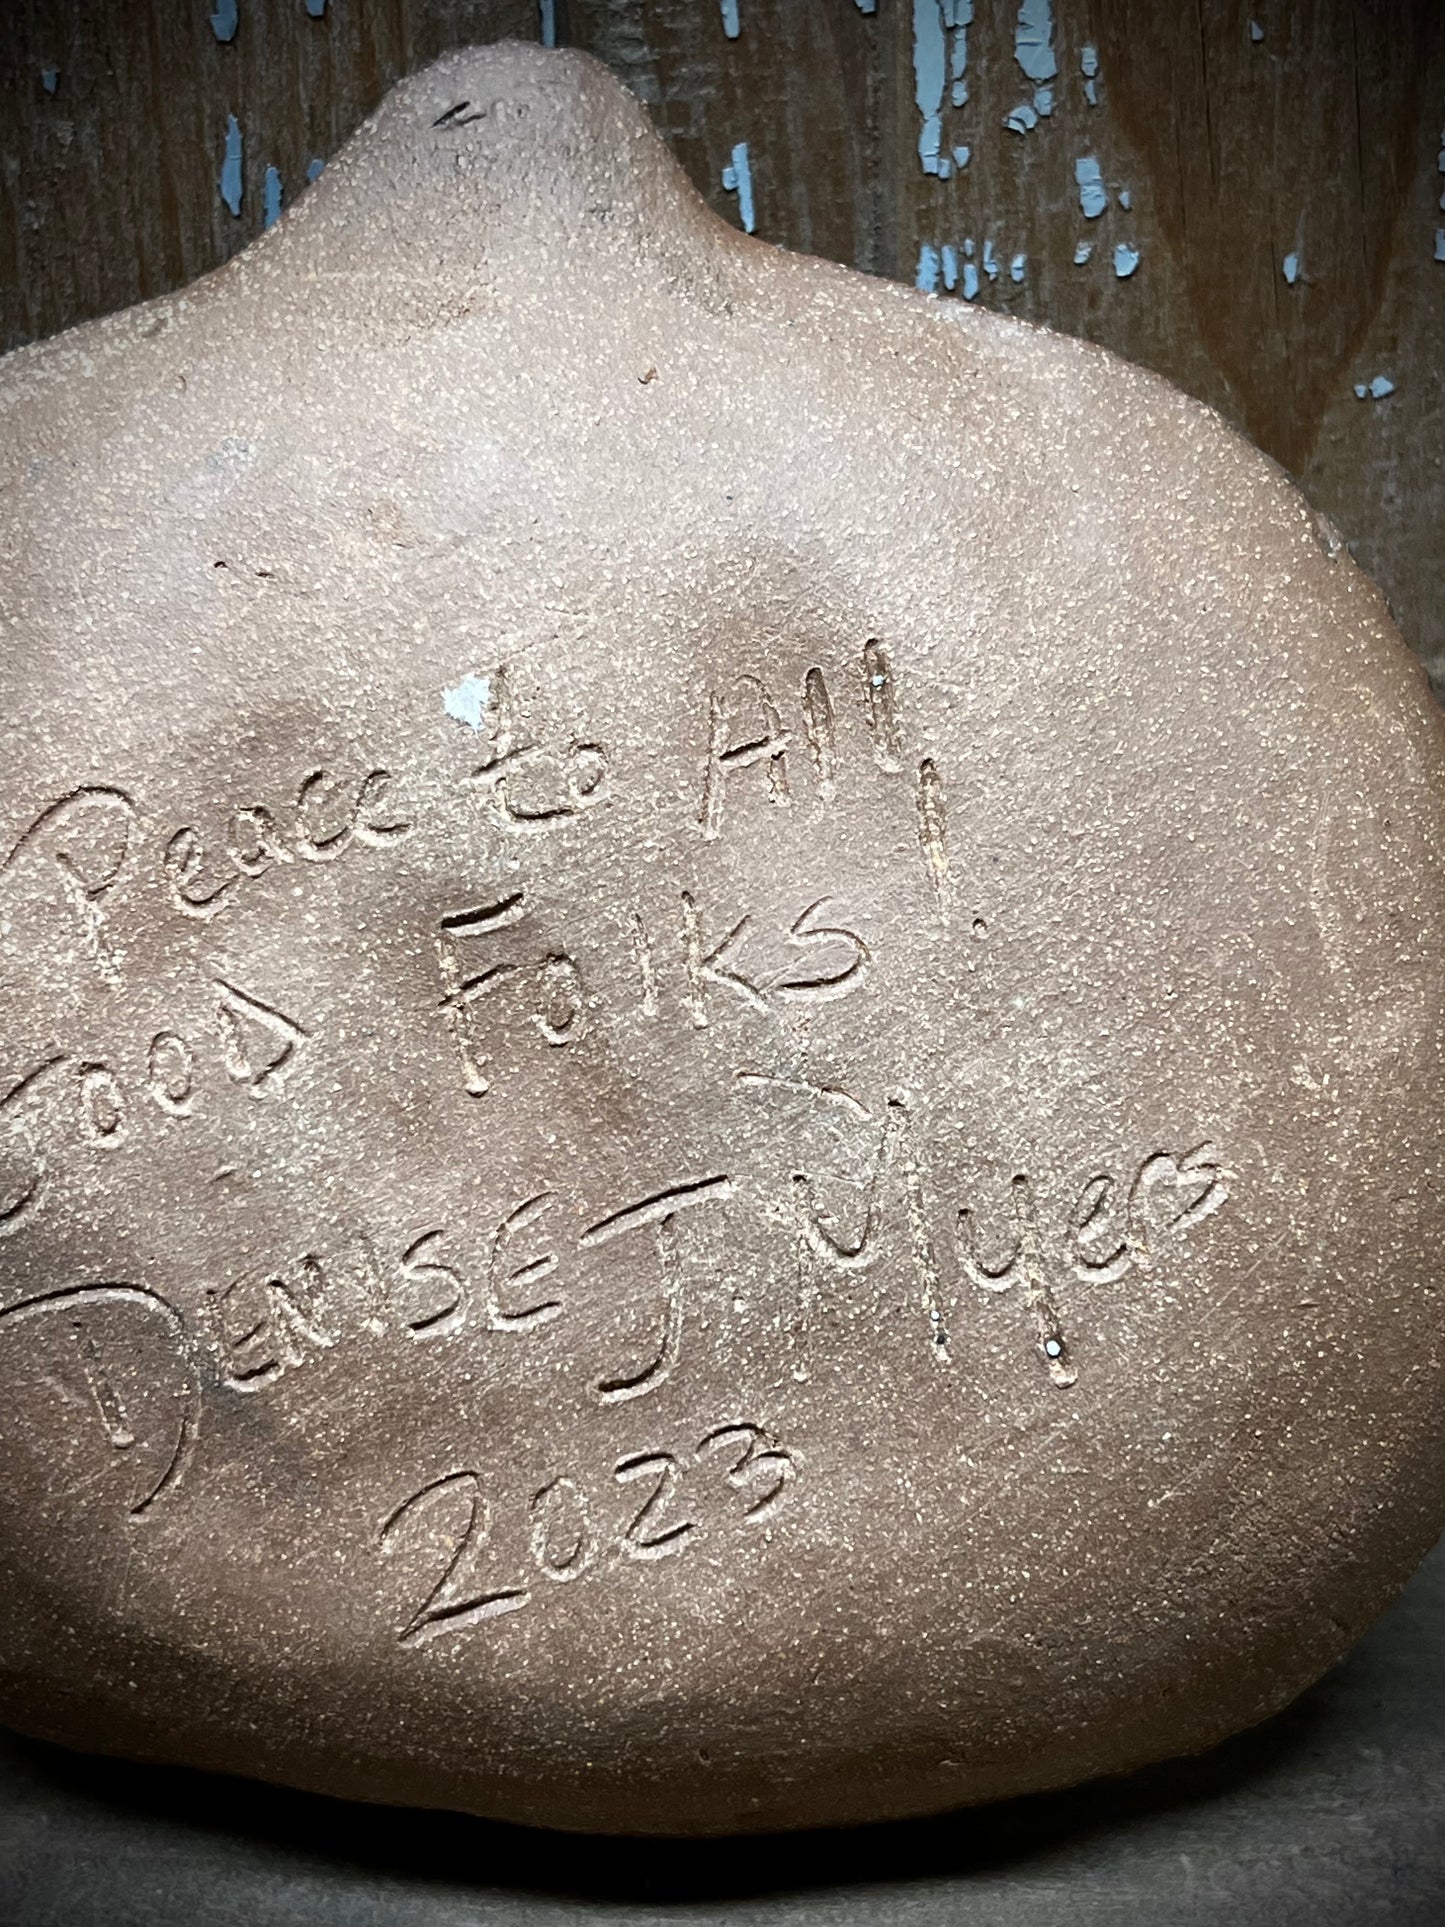 Peace to All!
Good Folks
DENISE J Myers
2023